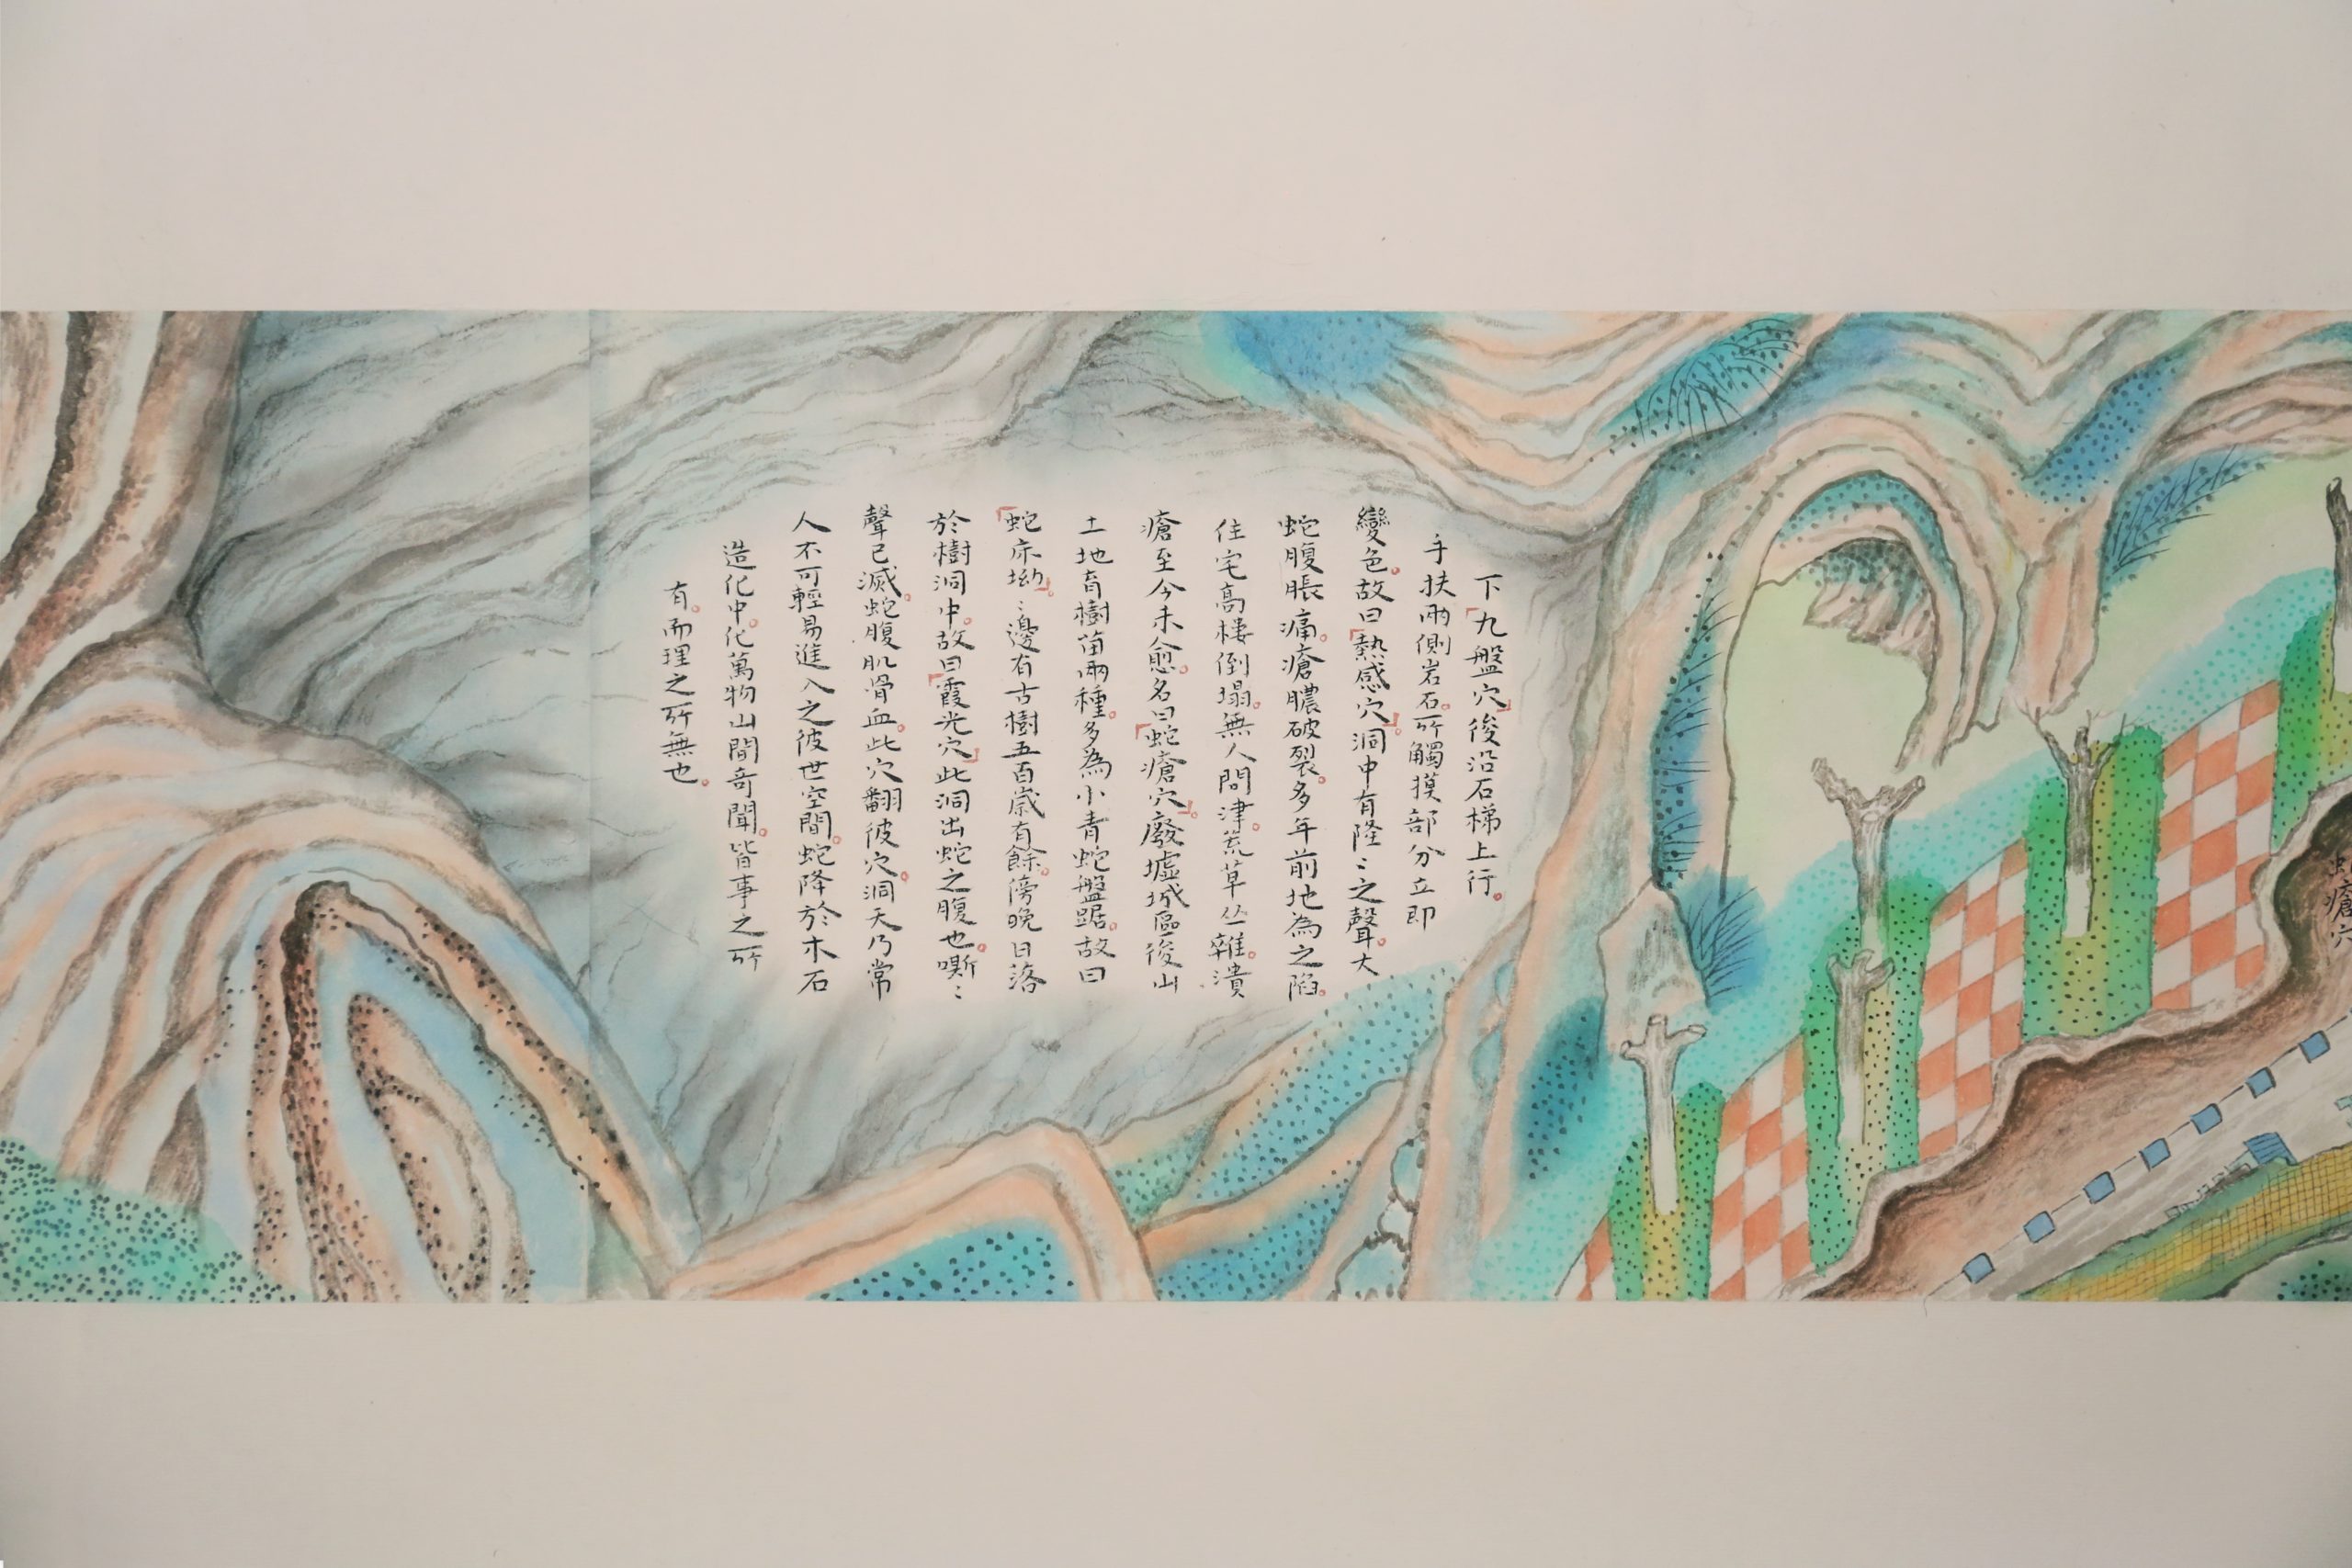 蛇瘡穴
下「九盤穴」後沿石梯上行。
手扶兩側岩石。所觸摸部分立即
變色。故曰「熱感穴」。洞中有隆〻之聲。大
蛇腹脹痛。瘡膿破裂。多年前地為之陷。
住宅高樓倒塌。無人問津。荒草丛雜。潰
瘡至今未愈。名曰「蛇瘡穴」。廢墟城區後山
土地育樹苗兩種。多為小青蛇盤踞。故曰
「蛇床坳」〻邊有古樹五百歲有餘。傍晚日落
於樹洞中。故曰「霞光穴」此洞出蛇之腹也。嘶〻
聲已滅。蛇腹肌骨血。此穴翻彼穴。洞天乃常
人不可輕易進入之彼世空間。蛇降於木石
造化中。化萬物山間奇聞。皆事之所
有。而理之所無也。